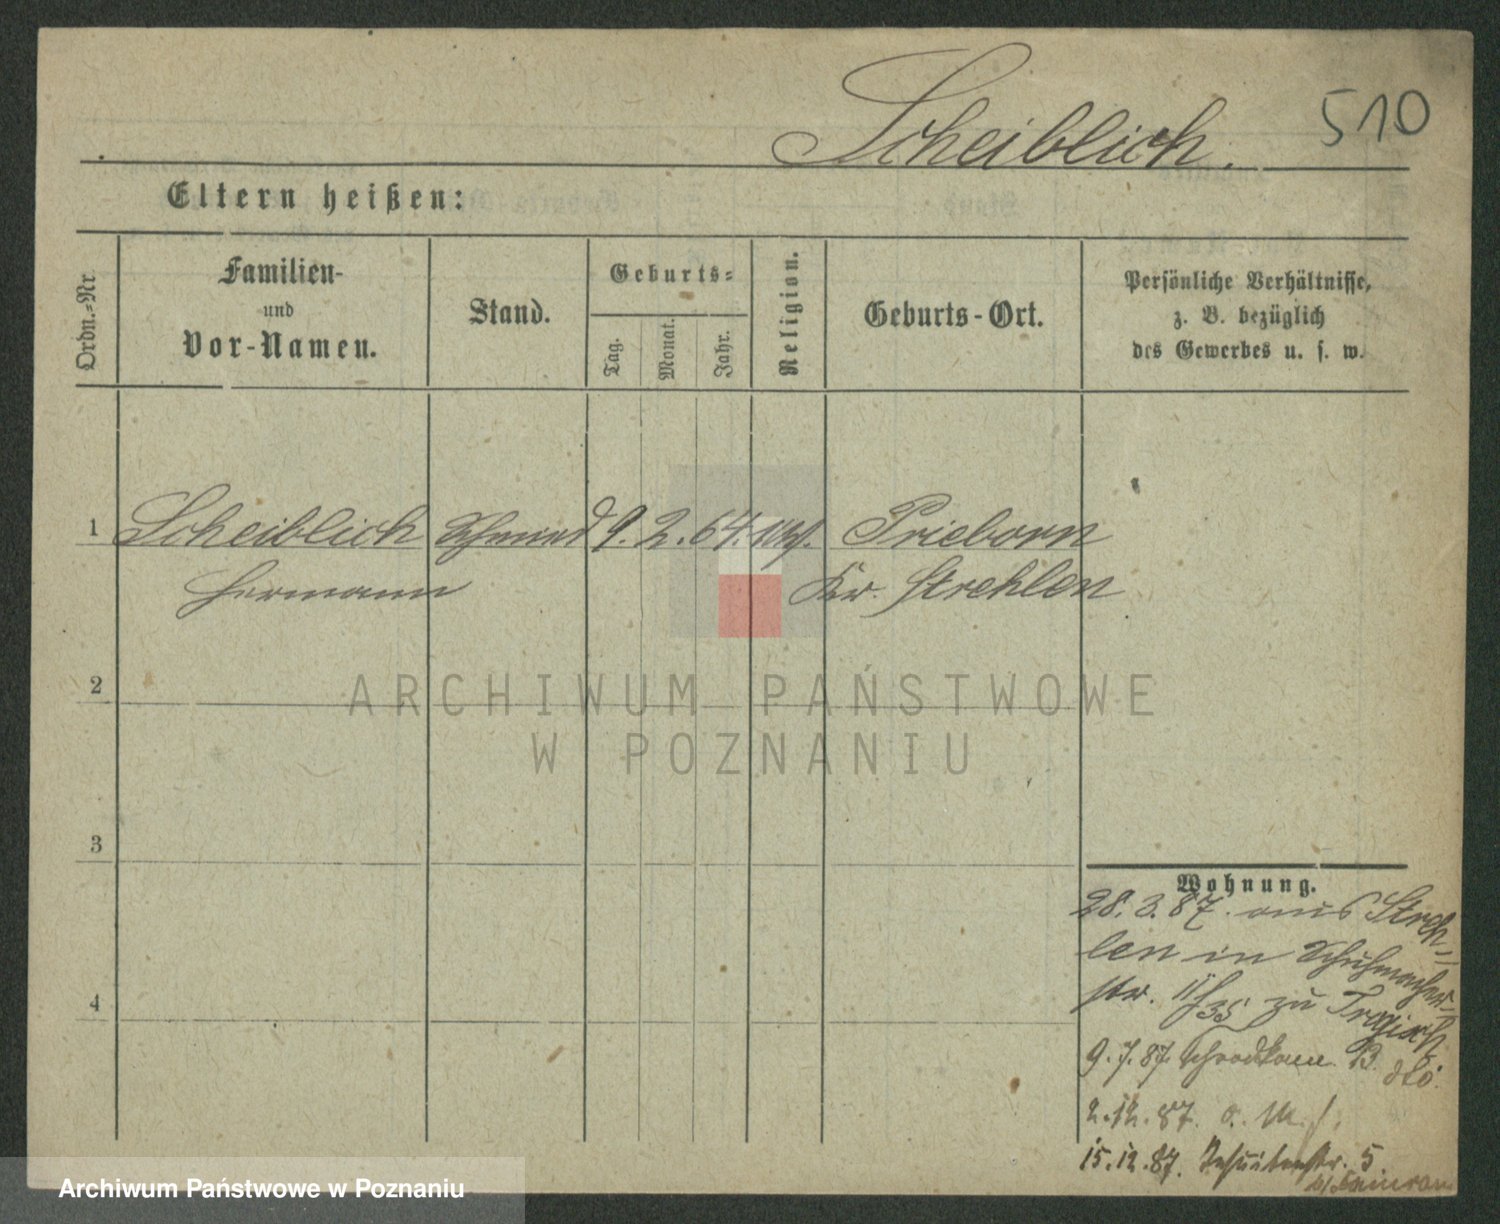 Scheiblich. 510
Eltern heißen:
Ordn.-Nr.
Familien-
und
Vor-Namen.
Stand.
Geburts-
Tag.
Monat.
Jahr.
Religion.
Geburts-Ort.
Persönliche Verhältnisse,
z. B. bezüglich
des Gewerbes u. s. w.
1 Scheiblich Schmied 9. 2. 64. Prieborn
Hermann Kr. Strehlen
2
3
4
ARCHIWUM PAŃSTWOWE
W POZNANIU
Wohnung.
28. 3. 87. aus Streh-
len in Schuhmacher-
str. zu
9. 7. 87. B.
2. 12. 87. o.
15. 12. 87. Jesuitenstr. 5.
Archiwum Państwowe w Poznaniu